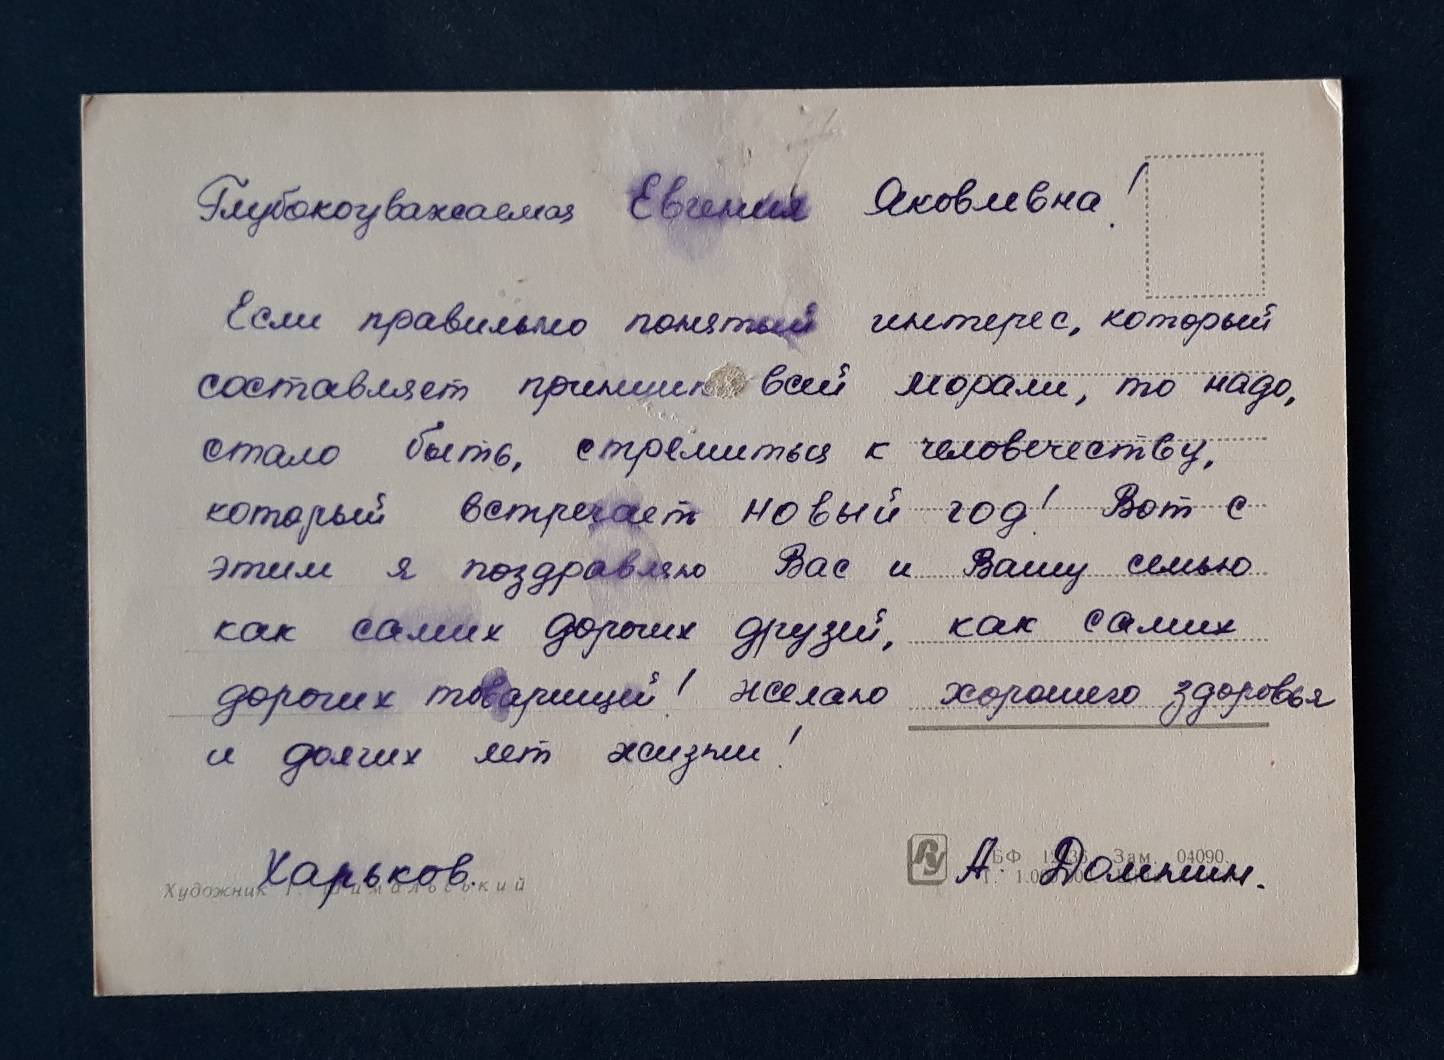 Глубокоуважаемая Евгения Яковлевна!
Если правильно понятый интерес, который
составляет принцип всей морали, то надо,
стало быть, стремиться к человечеству,
который встречает новый год! Вот с
этим я поздравляю Вас и Вашу семью
как самих дорогих друзей, как самих
дорогих товарищей! Желаю хорошего здоровья
и долгих лет жизни!
Харьков. А.
Художник
БФ Зам. 04090.